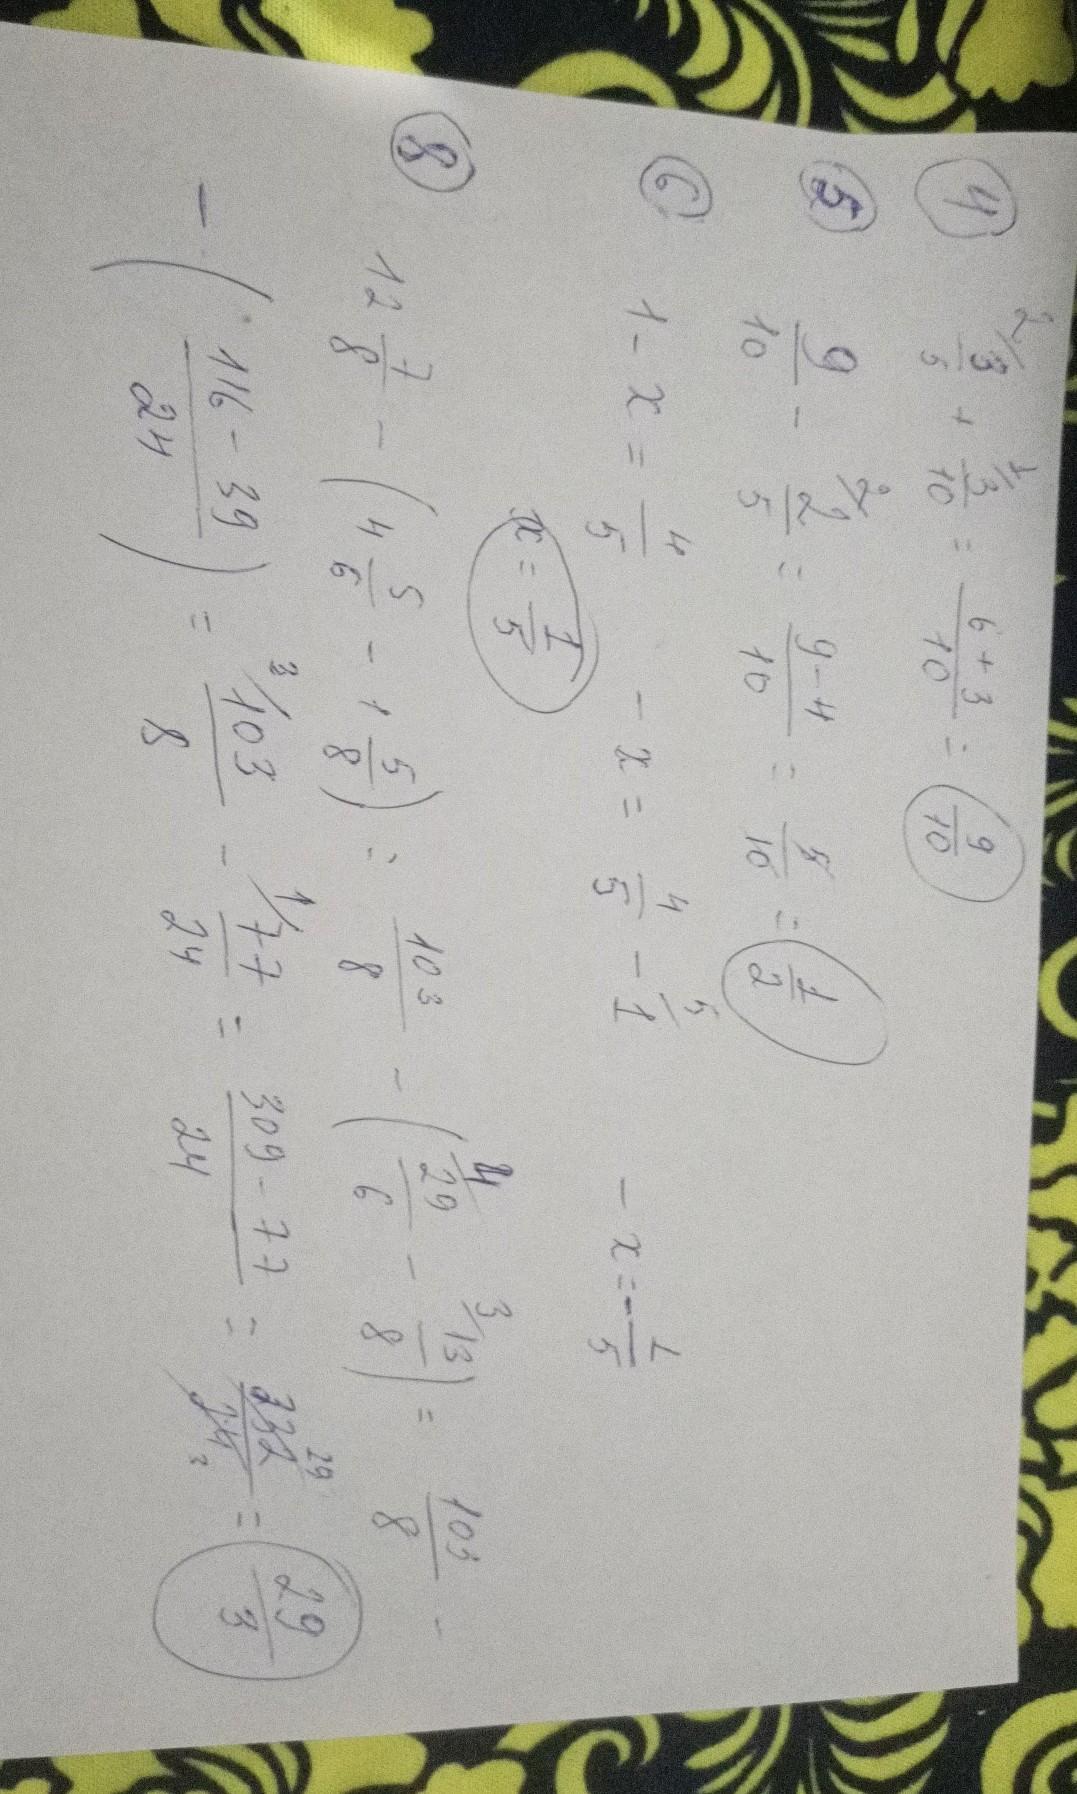 ④ 2/ 3/5 + 1/ 3/10 = (6+3)/10 = 9/10
⑤ 9/10 - 2/ 2/5 = (9-4)/10 = 5/10 = 1/2
⑥ 1 - x = 4/5   - x = 4/5 - 5/ 1   - x = - 1/5
x = 1/5
⑧ 12 7/8 - (4 5/6 - 1 5/8) = 103/8 - (4/ 29/6 - 3/ 13/8) = 103/8 -
- (116 - 39)/24 = 3/ 103/8 - 1/ 77/24 = (309 - 77)/24 = 232 29/24 3 = 29/3